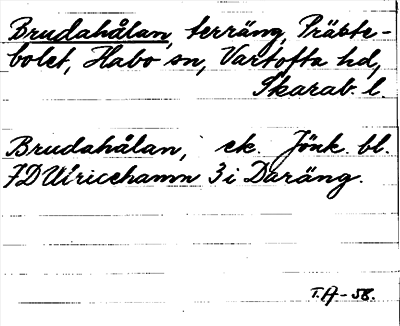 Brudahålan, terräng, Präste-
bolet, Habo sn, Vartofta hd,
Skarab. l.
Brudahålan, ek. Jönk. bl.
7D Ulricehamn 3 i Daräng.
T.A-58.